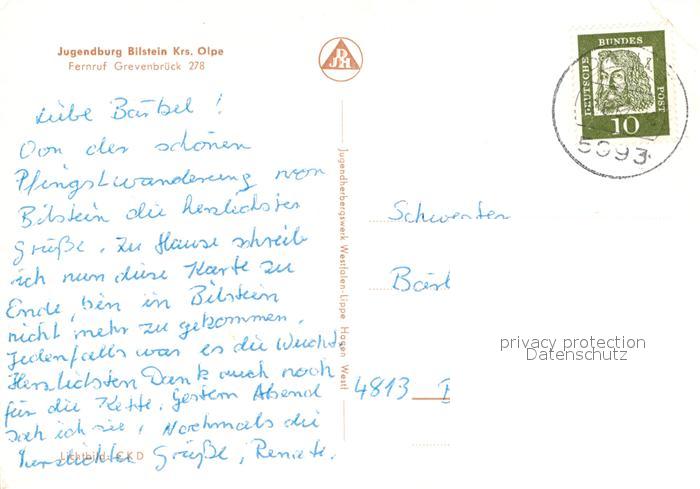 Jugendburg Bilstein Krs. Olpe
Fernruf Grevenbrück 278
DJH
DEUTSCHE BUNDES POST
10
5993
Liebe Bärbel!
Von der schönen
Pfingstwanderung von
Bilstein die herzlichsten
Grüße. Zu Hause schreib
ich nun diese Karte zu
Ende, bin in Bilstein
nicht mehr zu gekommen.
Jedenfalls war es die Wucht.
Herzlichsten Dank auch noch
für die Kette. Gestern Abend
sah ich sie! Nochmals die
herzlichsten Grüße, Renate.
Lichtbild: CKD
Jugendherbergswerk Westfalen-Lippe Hagen Westf
Schwester
Bärl
4813
privacy protection
Datenschutz